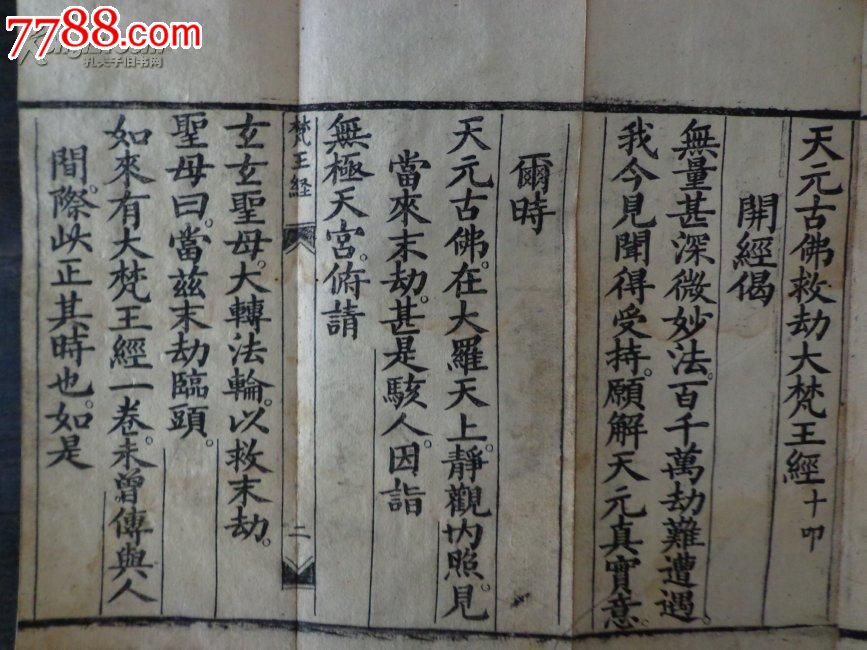 7788.com
孔夫子旧书网
天元古佛救劫大梵王經十叩
開經偈
無量甚深微妙法。百千萬劫難遭遇。
我今見聞得受持。願解天元真實意。
爾時
天元古佛。在大羅天上。靜觀內照。見
當來末劫。甚是駭人。因詣
無極天宮。俯請
梵王經 二
玄玄聖母。大轉法輪。以救末劫。
聖母曰。當茲末劫臨頭。
如來有大梵王經一卷。未曾傳與人
間。際此正其時也。如是